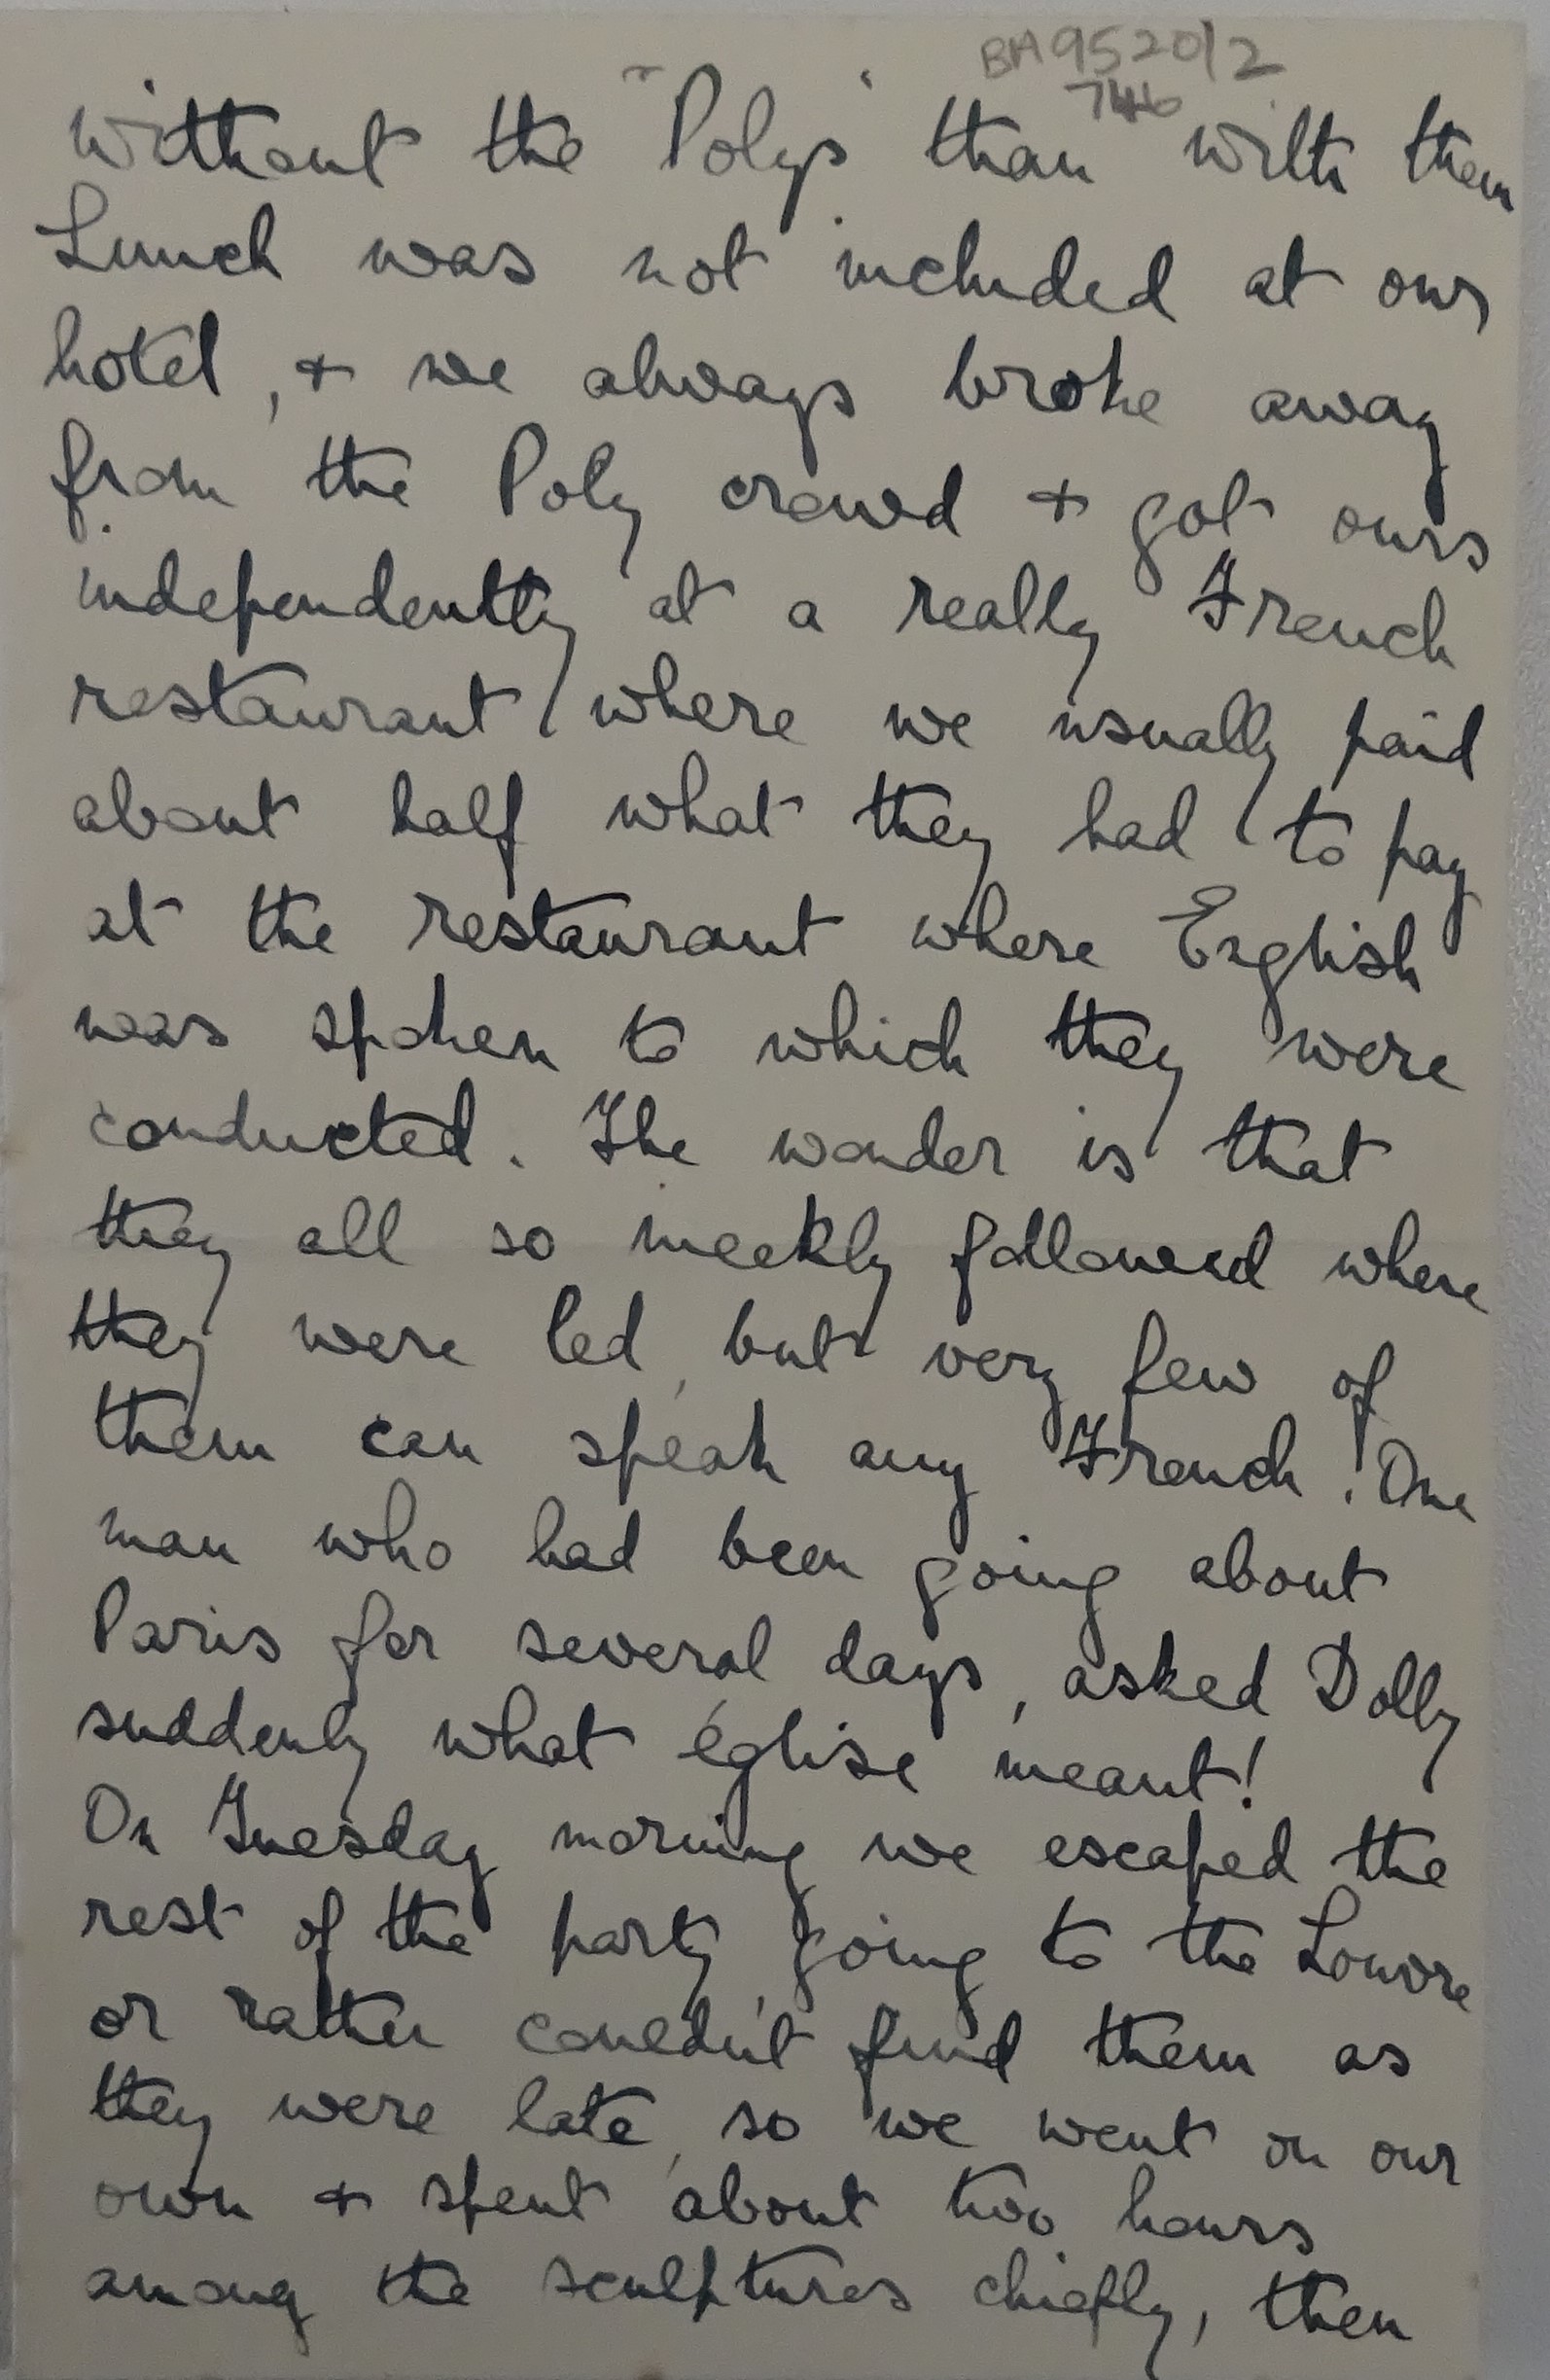 BA9520/2
746
without the "Polys" than with them
Lunch was not included at our
hotel, + we always broke away
from the Poly crowd + got ours
independently at a really French
restaurant where we usually paid
about half what they had to pay
at the restaurant where English
was spoken to which they were
conducted. The wonder is that
they all so meekly followed where
they were led, but very few of
them can speak any French! One
man who had been going about
Paris for several days, asked Dolly
suddenly what église meant!
On Tuesday morning we escaped the
rest of the party going to the Louvre
or rather couldn't find them as
they were late, so we went on our
own + spent about two hours
among the sculptures chiefly, then